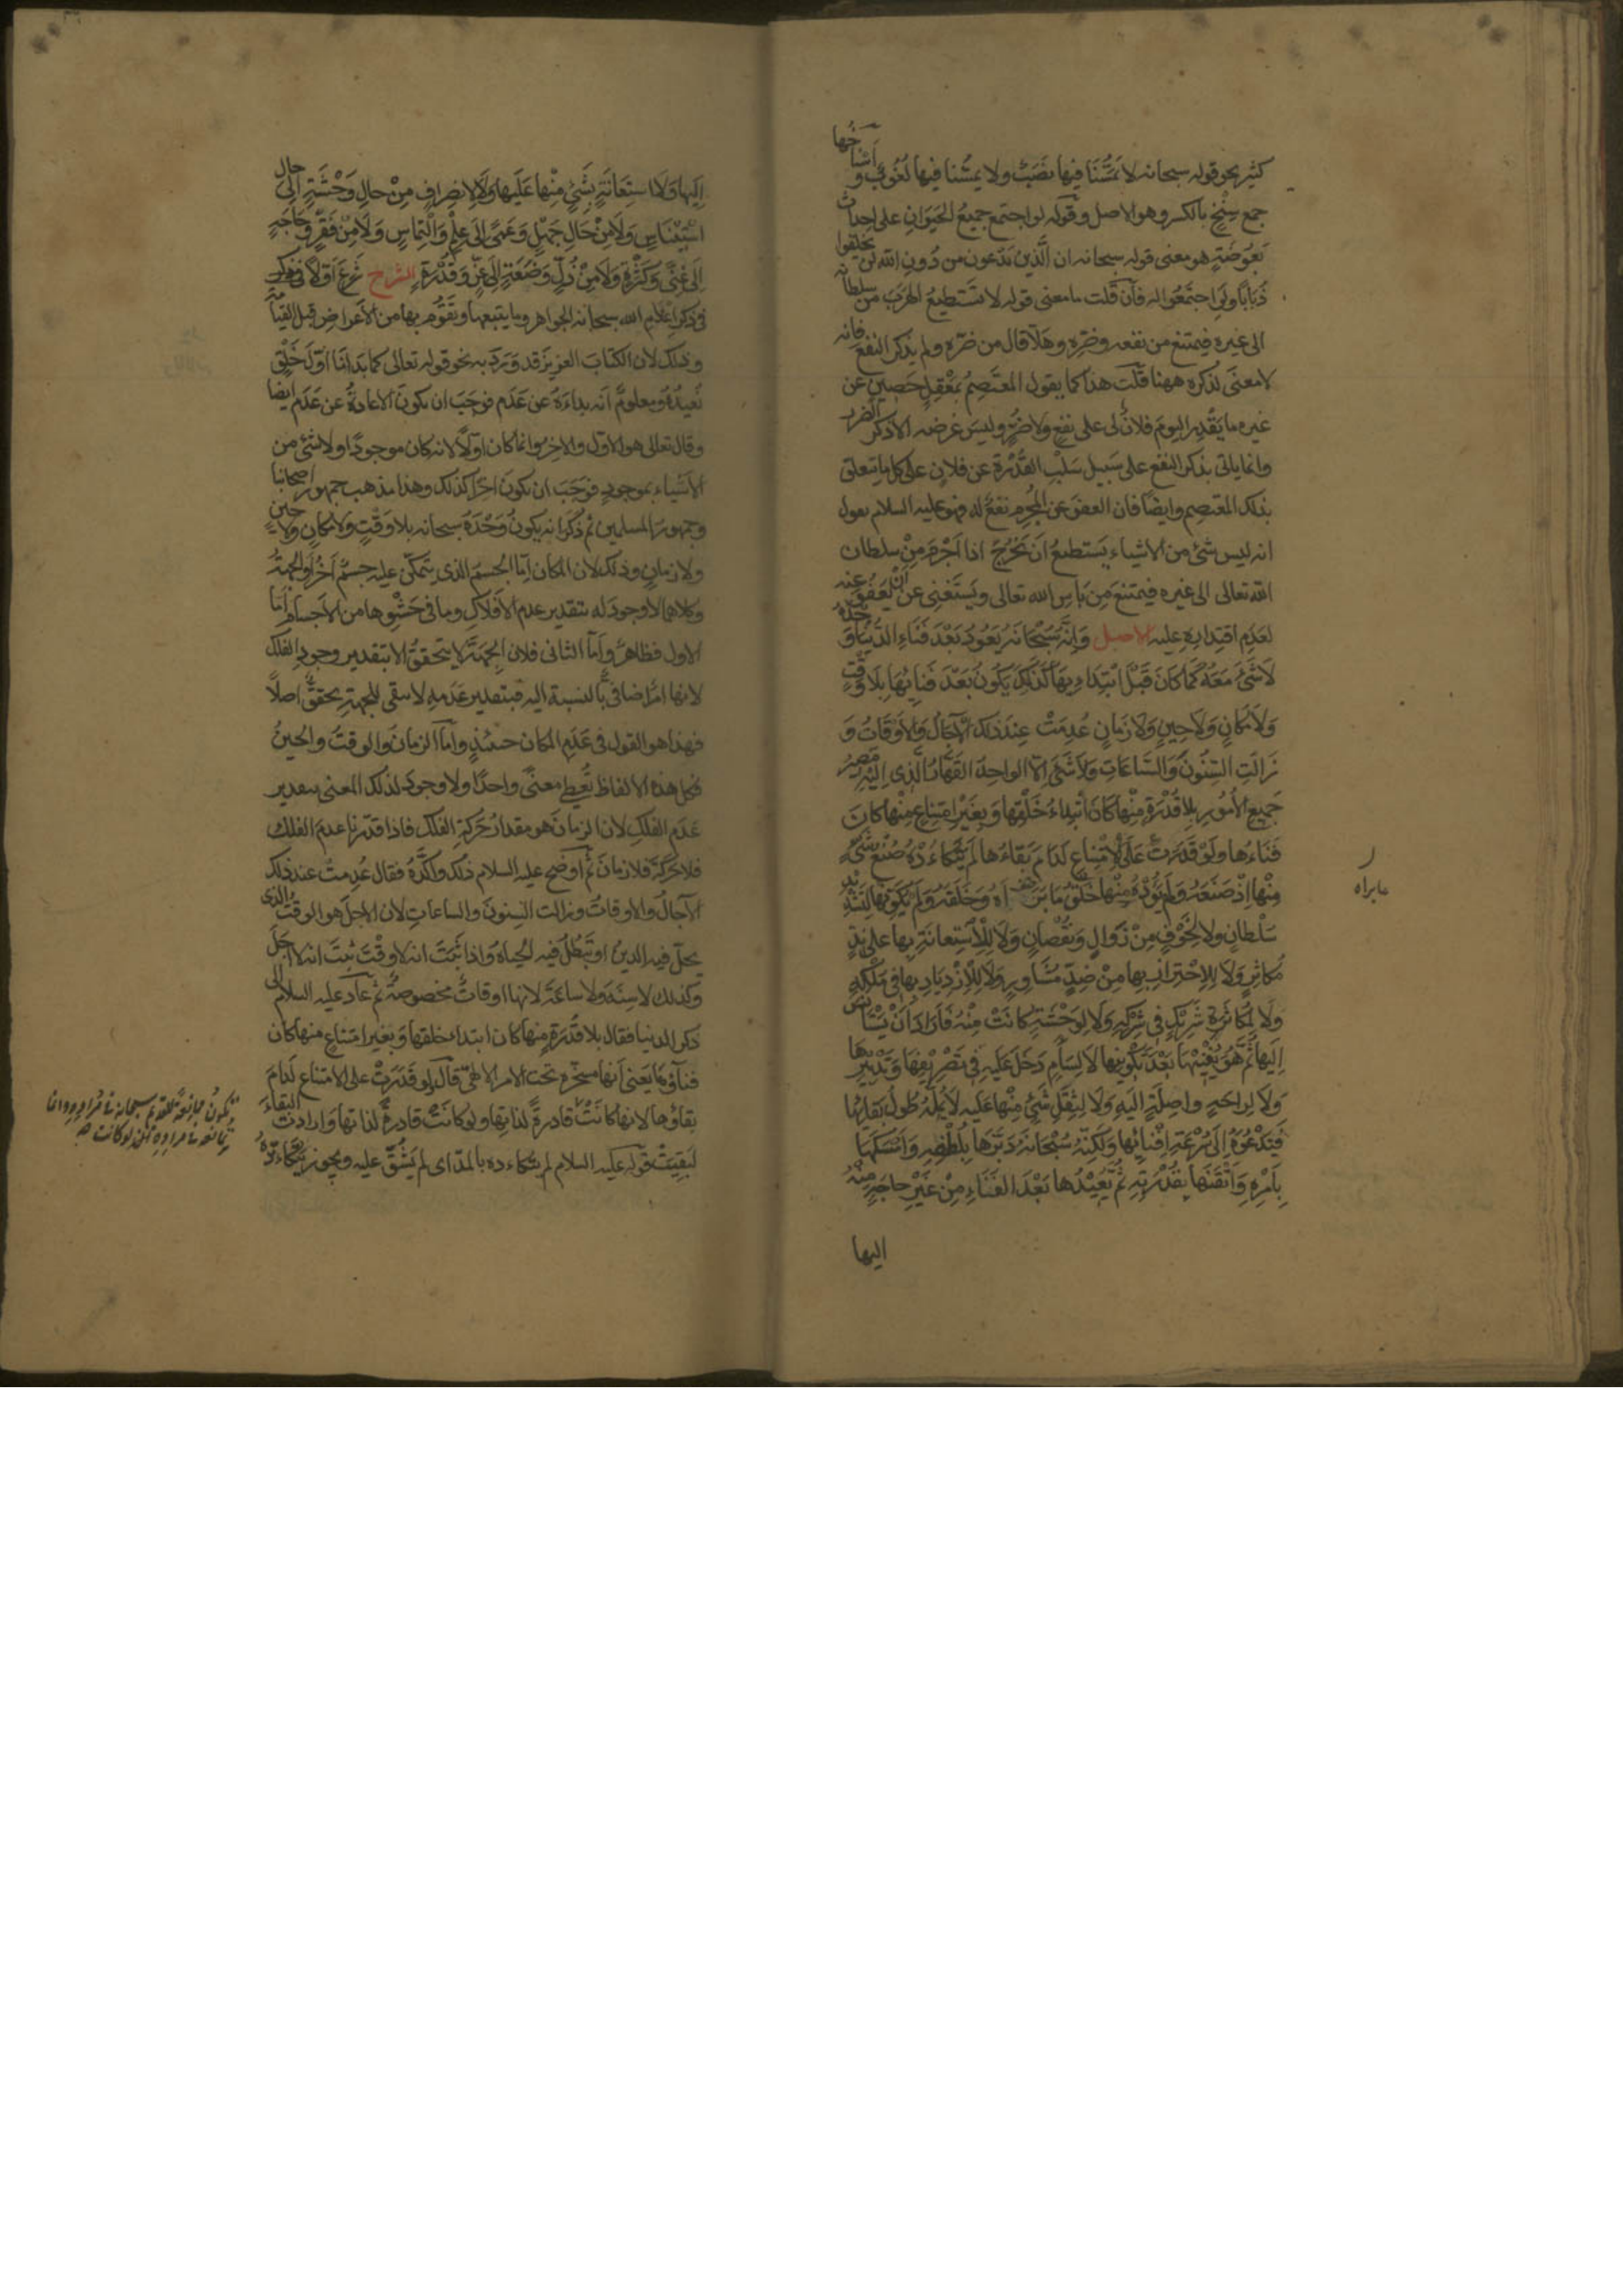 كثير نحو قوله سبحانه لا يمسّنا فيها نصب ولا يمسّنا فيها لغوب وأسناخها
جمع سِنْخ بالكسر وهو الاصل وقوله لو اجتمع جميع الحيوان على احداث
بعوضة هو معنى قوله سبحانه ان الذين تدعون من دون الله لن يخلقوا
ذبابا ولو اجتمعوا له فان قلت ما معنى قوله لا تستطيع الهرب من سلطانه
الى غيره فيمتنع من نفعه وضره وهلّا قال من ضره ولم يذكر النفع فانه
لا معنى لذكره ههنا قلت هذا كما يقول المعتصم بمعقل حصين عن
غيره ما يقدر اليوم فلان لى على نفع ولا ضر وليس غرضه الا ذكر الضرر
وانما ياتى بذكر النفع على سبيل سلب القدرة عن فلان على كل ما يتعلق
بذلك المعتصم وايضا فان العفو عن المجرم نفع له فهو عليه السلام يقول
انه ليس شئ من الاشياء يستطيع ان يخرج اذا اجرم من سلطان
الله تعالى الى غيره فيمتنع من باس الله تعالى ويستغنى عن أن يعفو عنه
لعدم اقتداره عليه الاصل وَإِنَّهُ سُبْحَانَهُ يَعُودُ بَعْدَ فَنَاءِ الدُّنْيَا وَحْدَهُ
لَا شَىْءَ مَعَهُ كَمَا كَانَ قَبْلَ ابْتِدَائِهَا كَذَلِكَ يَكُونُ بَعْدَ فَنَائِهَا بِلَا وَقْتٍ
وَلَا مَكَانٍ وَلَا حِينٍ وَلَا زَمَانٍ عُدِمَتْ عِنْدَ ذَلِكَ الْآجَالُ وَالْأَوْقَاتُ وَ
زَالَتِ السِّنُونَ وَالسَّاعَاتُ وَلَا شَىْءَ إِلَّا الواحِدُ القَهَّارُ الَّذِى إِلَيْهِ مَصِيرُ
جَمِيعِ الأُمُورِ بِلَا قُدْرَةٍ مِنْهَا كَانَ ابْتِدَاءُ خَلْقِهَا وَبِغَيْرِ امْتِنَاعٍ مِنْهَا كَانَ
فَنَاءُهَا وَلَوْ قَدَرَتْ عَلَى الْامْتِنَاعِ لَدَامَ بَقَاءُهَا لَمْ يَتَكَاءَدْهُ صُنْعُ شَىْءٍ
مِنْهَا إِذْ صَنَعَهُ وَلَمْ يَؤُدْهُ مِنْهَا خَلْقُ مَا بَرَأَهُ وَخَلَقَهُ وَلَمْ يُكَوِّنْهَا لِتَشْدِيدِ
سُلْطَانٍ ولا لِخَوْفٍ مِنْ زَوَالٍ وَنُقْصَانٍ وَلَا لِلْاسْتِعَانَةِ بِهَا عَلَى نِدٍّ
مُكَاثِرٍ وَلَا لِلِاحْتِرَازِ بِهَا مِنْ ضِدٍّ مُثَاوِرٍ وَلَا لِلْازْدِيَادِ بِهَا فِى مُلْكِهِ
وَلَا لِمُكَاثَرَةِ شَرِيكٍ فِى شِرْكِهِ وَلَا لِوَحْشَةٍ كَانَتْ مِنْهُ فَأَرَادَ أَنْ يَسْتَأْنِسَ
إِلَيْهَا ثُمَّ هُوَ يُفْنِيهَا بَعْدَ تَكْوِينِهَا لَا لِسَأَمٍ دَخَلَ عَلَيْهِ فِى تَصْرِيفِهَا وَتَدْبِيرِهَا
وَلَا لِرَاحَةٍ وَاصِلَةٍ إِلَيْهِ وَلَا لِثِقَلِ شَىْءٍ مِنْهَا عَلَيْهِ لَا يُمِلُّهُ طُولُ بَقَائِهَا
فَيَدْعُوَهُ إِلَى سُرْعَةِ إِفْنَائِهَا وَلَكِنَّهُ سُبْحَانَهُ دَبَّرَهَا بِلُطْفِهِ وَأَمْسَكَهَا
بِأَمْرِهِ وَأَتْقَنَهَا بِقُدْرَتِهِ ثُمَّ يُعِيدُهَا بَعْدَ الفَنَاءِ مِنْ غَيْرِ حَاجَةٍ مِنْهُ
اليها
مابراه
إِلَيْهَا وَلَا اسْتِعَانَةٍ بِشَىْءٍ مِنْهَا عَلَيْهَا وَلَا لِانْصِرَافٍ مِنْ حَالِ وَحْشَةٍ إِلَى حَالِ
اسْتِئْنَاسٍ وَلَا مِنْ حَالِ جَهْلٍ وَعَمًى إِلَى عِلْمٍ وَالْتِمَاسٍ وَلَا مِنْ فَقْرٍ وَحَاجَةٍ
إِلَى غِنًى وَكَثْرَةٍ وَلَا مِنْ ذُلٍّ وَضَعَةٍ إِلَى عِزٍّ وَقُدْرَةٍ الشرح شرع اولا
فى ذكر اعدام الله سبحانه الجواهر وما يتبعها ويقوم بها من الاعراض قبل القيامة
وذلك لان الكتاب العزيز قد ورد به نحو قوله تعالى كما بدأنا اوّل خلق
نعيده ومعلوم انه بداءه عن عدم فوجب ان تكون الاعادة عن عدم ايضا
وقال تعالى هو الاول والاخر وانما كان اولا لانه كان موجودا ولا شئ من
الاشياء بموجود فوجب ان يكون اخرا كذلك وهذا مذهب جمهور اصحابنا
وجمهور المسلمين ثم ذكر انه يكون وحده سبحانه بلا وقت ولا مكان ولا حين
ولا زمان وذلك لان المكان اما الجسم الذى يتمكن عليه جسم اخر او الجهة
وكلاهما لا وجود له بتقدير عدم الافلاك وما فى حشوها من الاجسام اما
الاول فظاهر واما الثانى فلان الجهة لا يتحقق الا بتقدير وجود الفلك
لانها امر اضافى بالنسبة اليه فبتقدير عدمه لا يبقى للجهة تحقق اصلا
فهذا هو القول فى عدم المكان حينئذ واما الزمان والوقت والحين
فكل هذه الالفاظ تعطى معنى واحدا ولا وجود لذلك المعنى بتقدير
عدم الفلك لان الزمان هو مقدار حركة الفلك فاذا قدرنا عدم الفلك
فلا حركة فلا زمان ثم اوضح عليه السلام ذلك واكّده فقال عدمت عند ذلك
الآجال والاوقات وزالت السنون والساعات لان الاجل هو الوقت الذى
يحلّ فيه الدين او تبطل فيه الحياة واذا ثبت انه لا وقت ثبت انه لا اجل
وكذلك لا سنة ولا ساعة لانها اوقات مخصوصة ثم عاد عليه السلام الى
ذكر الدنيا فقال بلا قدرة منها كان ابتداء خلقها وبغير امتناع منها كان
فناؤها يعنى انها مسخرة تحت الامر الالهى قال ولو قدرت على الامتناع لدام
بقاؤها لانها كانت قادرة لذاتها ولو كانت قادرة لذاتها وارادت البقاء
لبقيت قوله عليه السلام لم يتكاءده بالمد اى لم يشق عليه ويجوز يتكأّده
تكون ممانعة للقديم سبحانه فى مراده وانما
تمانعه فى مراده ان لو كانت